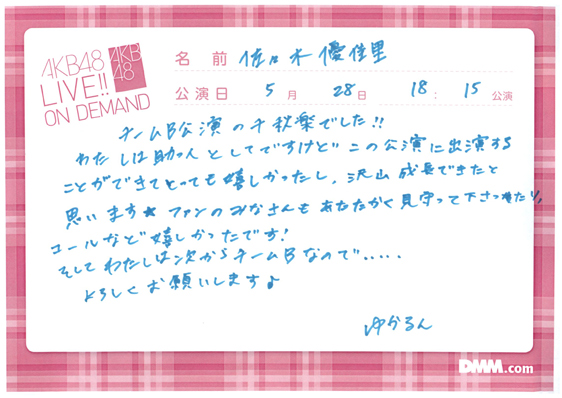 AKB48
LIVE!!
ON DEMAND
AKB
48
名前 佐々木優佳里
公演日 5月 28日 18:15 公演
チームB公演の千秋楽でした!!
わたしは助っ人としてですけど この公演に出演する
ことができてとっても嬉しかったし、沢山 成長できたと
思います★ ファンのみなさんもあたたかく見守って下さったり、
コールなど嬉しかったです!
そしてわたしは次からチームBなので.....
よろしくお願いします♪
ゆかるん
DMM.com